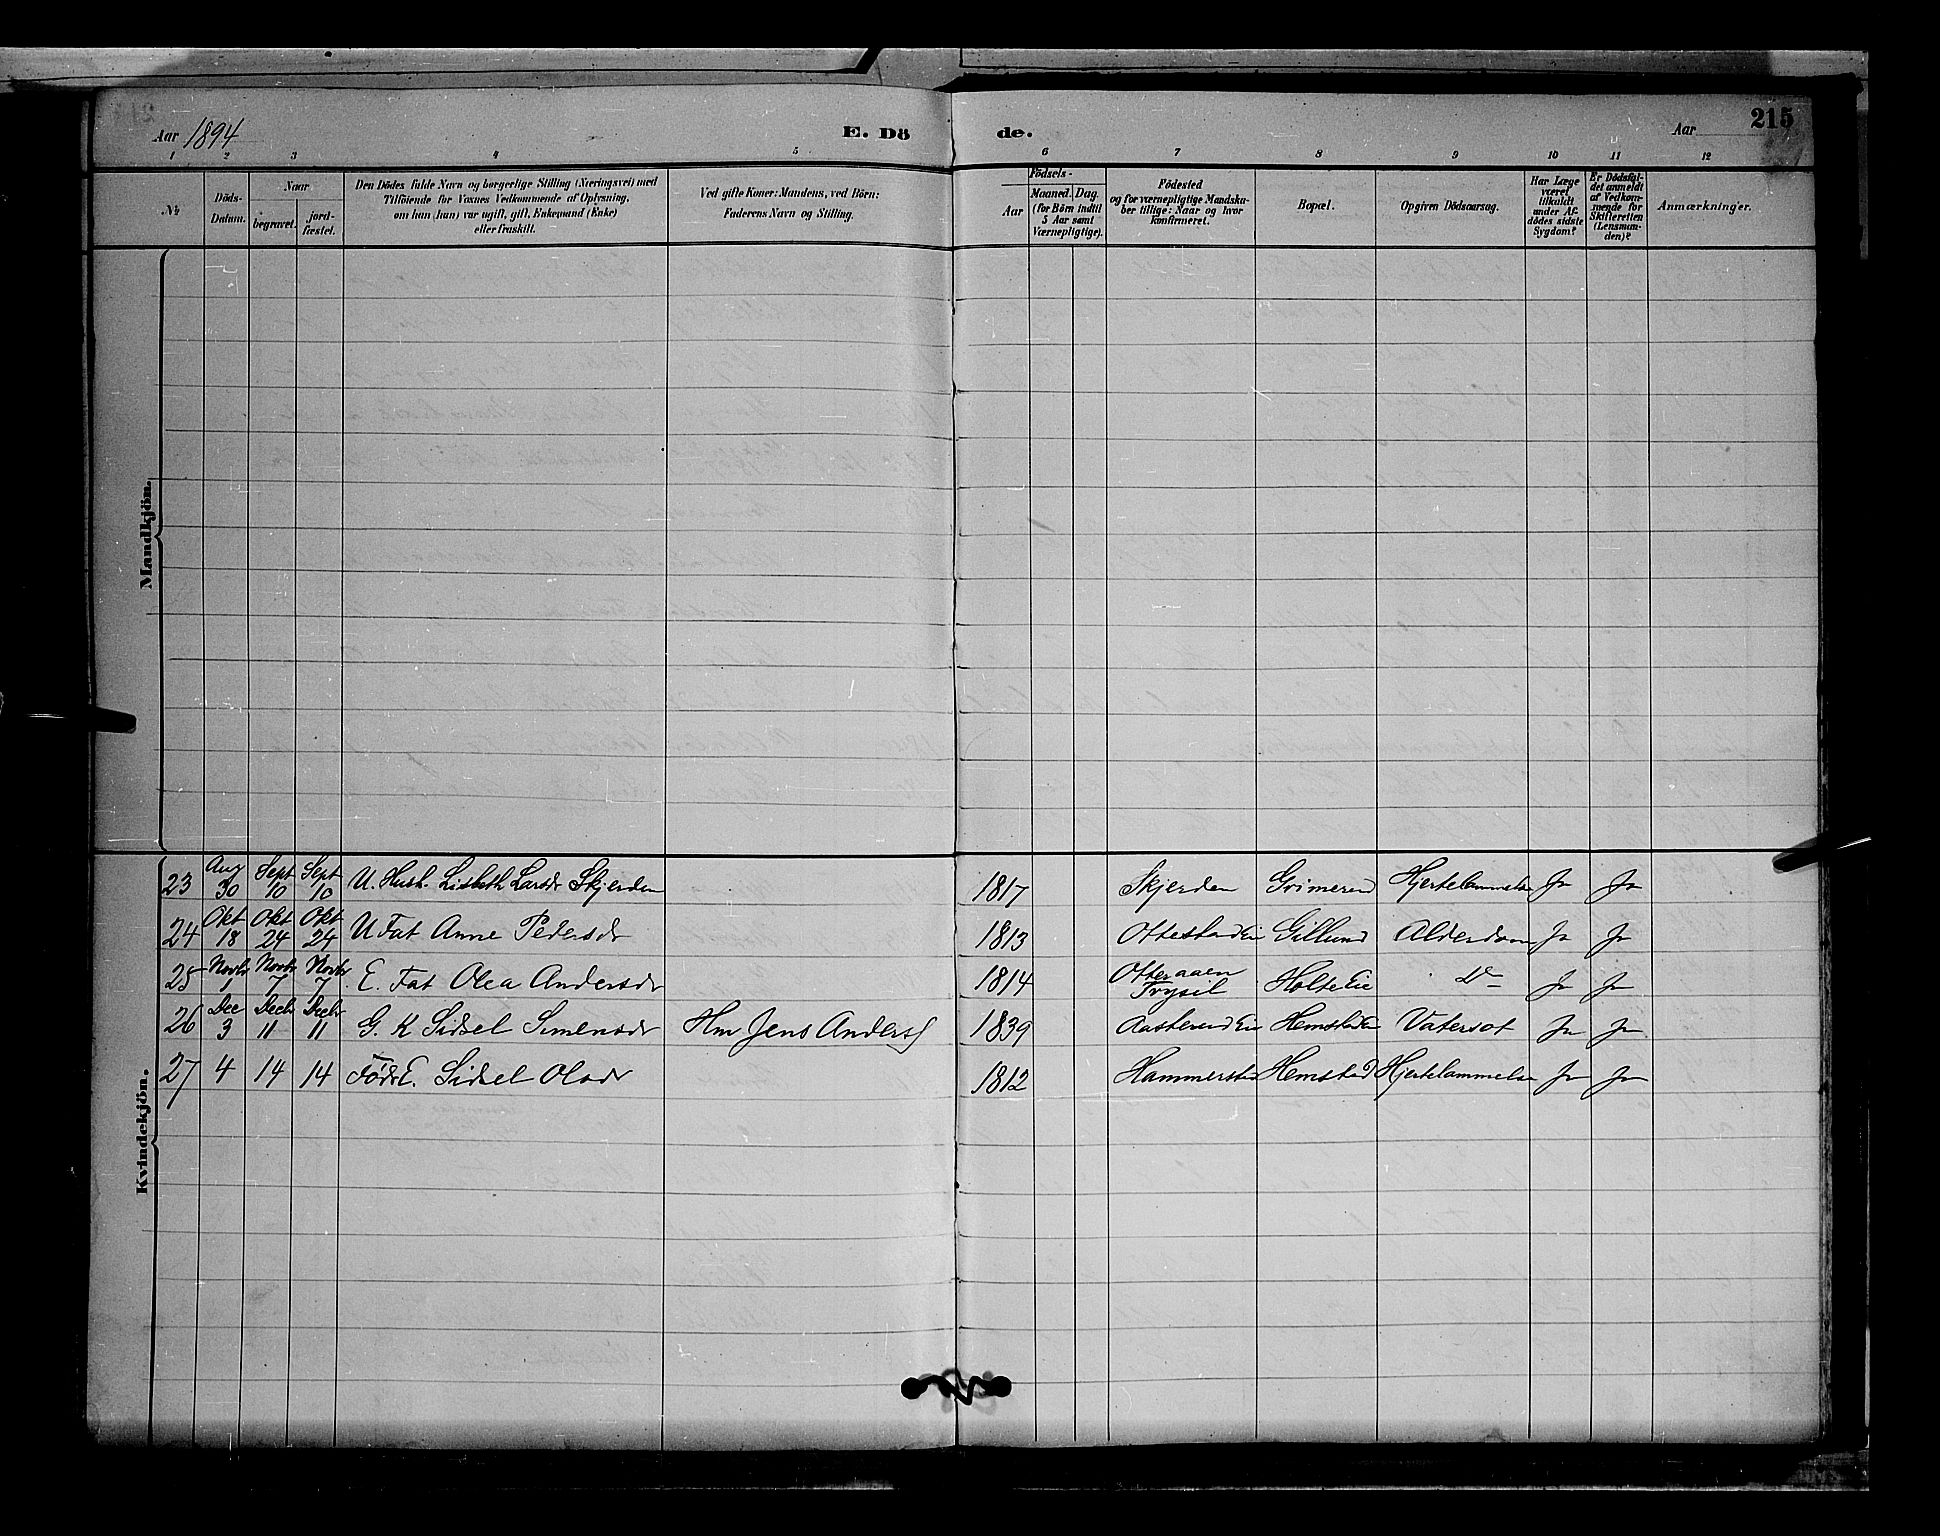 Aar 1894 E. Dö de. Aar 215
1 2 3 4 5 6 7 8 9 10 11 12
№ Döds-Datum. Naar begravet. jord-fæstet. Den Dödes fulde Navn og borgerlige Stilling (Næringsvei) med Tilföiende for Voxnes Vedkommende af Oplysning, om han (hun) var ugift, gift, Enkemand (Enke) eller fraskilt. Ved gifte Koner: Mandens, ved Börn: Faderens Navn og Stilling. Födsels- Aar Maaned. Dag. (for Börn indtil 5 Aar samt Værnepligtige). Födested og for værnepligtige Mandskaber tillige: Naar og hvor konfirmeret. Bopæl. Opgiven Dödsaarsag. Har Læge været tilkaldt under Afdödes sidste Sygdom? Er Dödsfaldet anmeldt af Vedkommende for Skifteretten (Lensmanden)? Anmærkninger.
Mandkjön.
Kvindekjön.
23 Aug 30 Sept 10 Sept 10 U. Hush. Lisbeth Larsdr Skjerden 1817 Skjerden Grimerud Hjertelammelse Ja Ja
24 Okt 18 Okt 24 Okt 24 U Fat Anne Pedersdr 1813 Ottestad Eie Gillund Alderdom Ja Ja
25 Novbr 1 Novbr 7 Novbr 7 E. Fat Olea Andersdr 1814 Otteraaen Trysil Holte Eie Do Ja Ja
26 Dec 3 Decbr 11 Decbr 11 G. K Sidsel Simensdr Hm Jens Anders 1839 Aasterud Eie Hemstad Eie Vatersot Ja Ja
27 4 14 14 Føds E. Sidsel Olsdr 1812 Hammerstad Hemstad Hjertelammelse Ja Ja